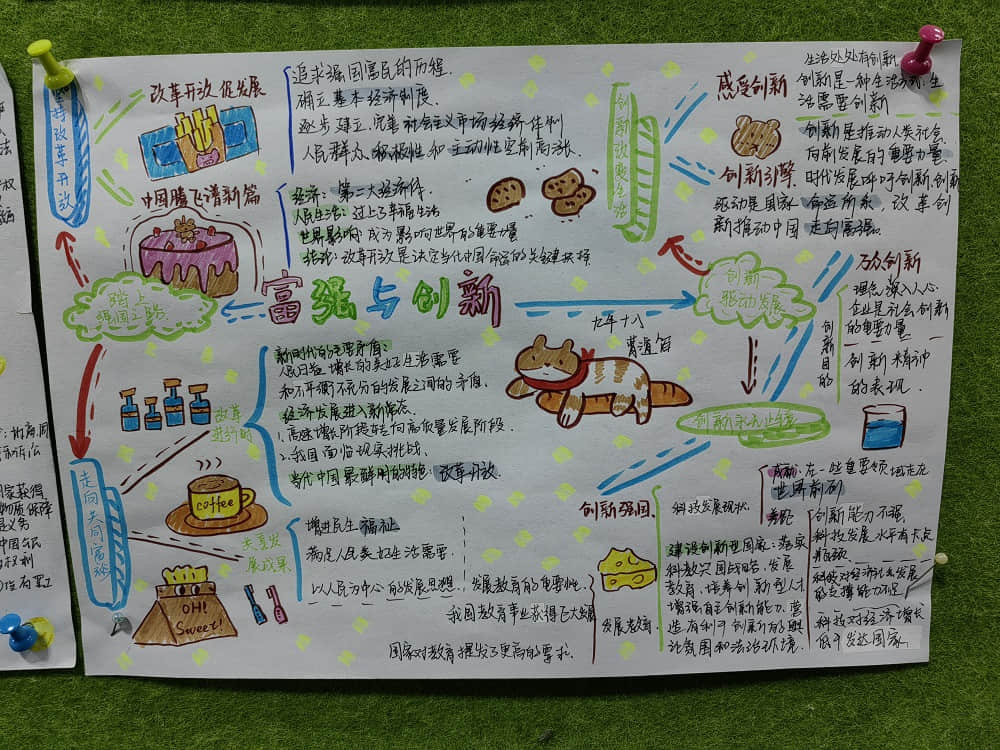 富强与创新
九年十八
踏上强国之路
坚持改革开放
改革开放 促发展
追求强国富民的历程.
确立基本经济制度.
逐步建立、完善社会主义市场经济体制
人民群众积极性和主动性空前高涨.
中国腾飞谱新篇
经济:第二大经济体.
人民生活:过上了幸福生活
世界影响:成为影响世界的重要力量
结论:改革开放是决定当代中国命运的关键抉择
走向共同富裕
改革
进行时
新时代的主要矛盾:
人民日益增长的美好生活需要
和不平衡不充分的发展之间的矛盾.
经济发展进入新常态
1.高速增长阶段转向高质量发展阶段.
2.我国面临现实挑战.
当代中国最鲜明的特色:改革开放.
coffee
OH!
Sweet!
共享发
展成果
增进民生福祉
满足人民美好生活需要.
以人民为中心的发展思想.
创新
驱动发展
创新改变生活
感受创新
生活处处有创新
创新是一种生活方式,生
活需要创新
创新引擎
创新是推动人类社会
向前发展的重要力量
时代发展呼唤创新,创新
驱动是国家命运所系,改革创
新推动中国走向富强.
创新永无止境
万众创新
创新目的
理念深入人心
企业是社会创新
的重要力量
创新精神
的表现.
创新强国.
科技发展现状.
成就:在一些重要领域走在
世界前列
差距
创新能力不强.
科技发展水平有卡点
瓶颈
科技对经济社会发展
的支撑能力不足
科技对经济增长
低于发达国家.
建设创新型国家:落实
科教兴国战略、发展
教育,培养创新型人才
增强自主创新能力.营
造有利于创新的舆
论氛围和法治环境.
发展教育.
发展教育的重要性.
我国教育事业获得巨大发展
国家对教育提出了更高的要求.